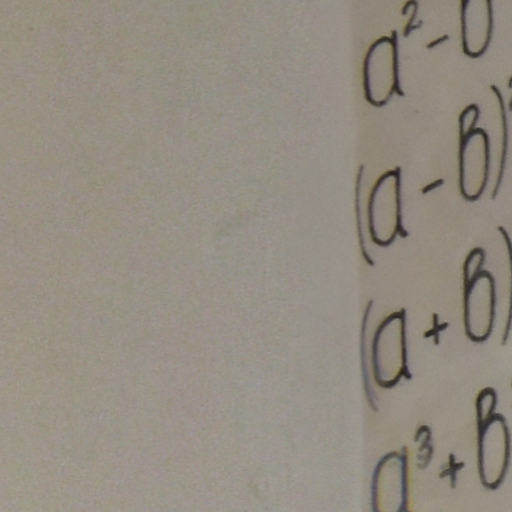 a² - b
(a - b)²
(a + b)
a³ + b